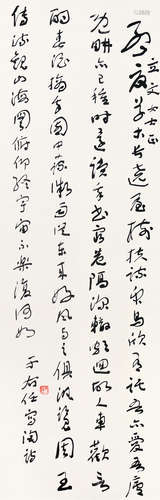 立文女士正
孟夏草木長遶屋樹扶疏眾鳥欣有託吾亦愛吾廬
既耕亦已種時還讀我書窮巷隔深轍頗迴故人車歡言
酌春酒摘我園中蔬微雨從東來好風與之俱汎覽周王
傳流觀山海圖俯仰終宇宙不樂復何如
于右任寫陶詩